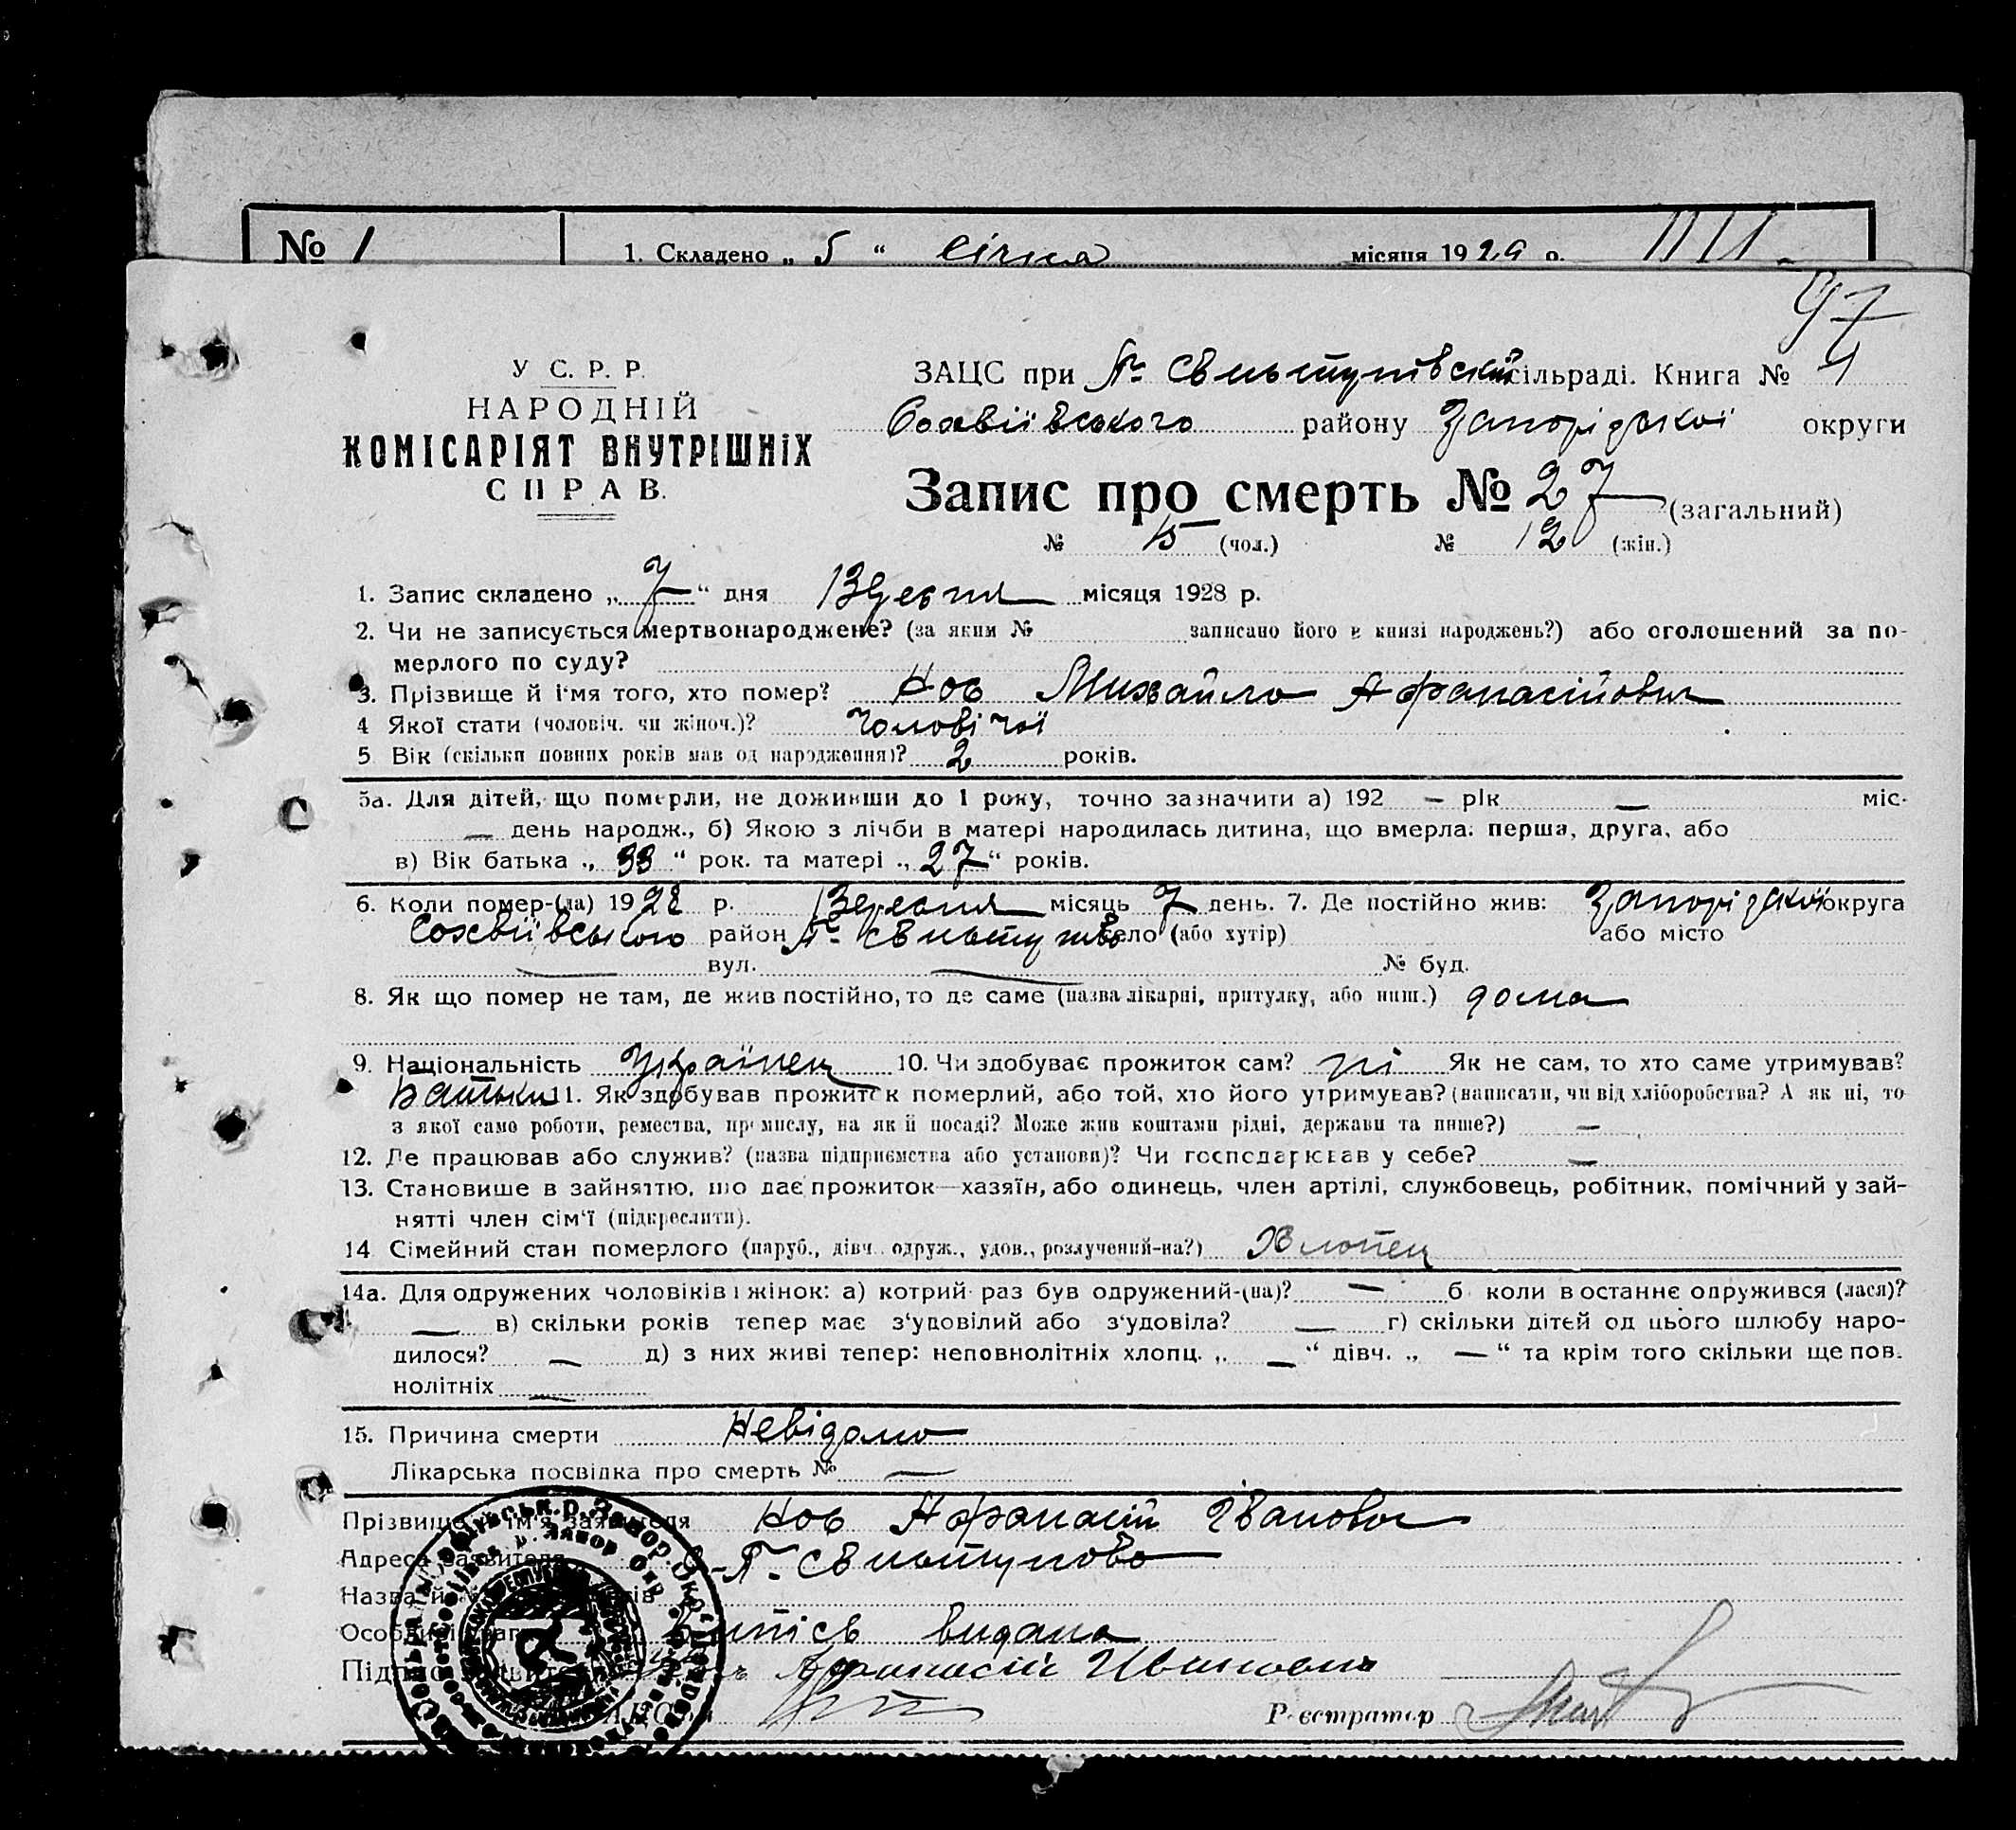 № 1
1. Складено „ 5 “ січня місяця 1929 р.
97
У С. Р. Р.
НАРОДНІЙ
КОМІСАРІЯТ ВНУТРІШНІХ
СПРАВ.
ЗАЦС при сільраді. Книга № 1
району Запорізької округи
Запис про смерть № 27 (загальний)
№ 15 (чол.) № 12 (жін.)
1. Запис складено „ 7 “ дня Вересня місяця 1928 р.
2. Чи не записується мертвонароджене? (за яким № записано його в книзі народжень?) або оголошений за по-
мерлого по суду?
3. Прізвище й ім'я того, хто помер? Нос Михайло Афанасійович
4 Якої стати (чоловіч. чи жіноч.)? Чоловічої
5 Вік (скільки повних років мав од народження)? 2 років.
5а. Для дітей, що померли, не доживши до 1 року, точно зазначити а) 192 — рік — міс.
— день народж., б) Якою з лічби в матері народилась дитина, що вмерла: перша, друга, або
в) Вік батька „ 33 “ рок. та матері „ 27 “ років.
6. Коли помер-(ла) 1928 р. Вересня місяць 7 день. 7. Де постійно жив: Запорізької округа
район село (або хутір) або місто
— вул. — № буд.
8. Як що помер не там, де жив постійно, то де саме (назва лікарні, притулку, або инш.) дома
9. Національність Українец 10. Чи здобуває прожиток сам? ні Як не сам, то хто саме утримував?
Батьки 11. Як здобував прожиток померлий, або той, хто його утримував? (написати, чи від хліборобства? А як ні, то
з якої само роботи, ремества, промислу, на якій посаді? Може жив коштами рідні, держави та инше?) —
12. Де працював або служив? (назва підприємства або установи)? Чи господарював у себе? —
13. Становище в зайняттю, що дає прожиток—хазяїн, або одинець, член артілі, службовець, робітник, помічний у зай-
нятті член сім'ї (підкреслити).
14 Сімейний стан померлого (паруб., дівч. одруж., удов., розлучений-на?) Хлопец
14а. Для одружених чоловіків і жінок: а) котрий раз був одружений-(на)? — б коли востаннє одружився (лася)?
— в) скільки років тепер має з'удовілий або з'удовіла? — г) скільки дітей од цього шлюбу наро-
дилося? — д) з них живі тепер: неповнолітніх хлопц. „ — “ дівч. „ — “ та крім того скільки ще пов.
нолітніх —
15. Причина смерти Невідомо
Лікарська посвідка про смерть № —
Прізвище й ім'я заявителя Нос Афанасій Іванович
Адреса заявителя
Випісь видана
Афанасий Иванович
Реєстратор